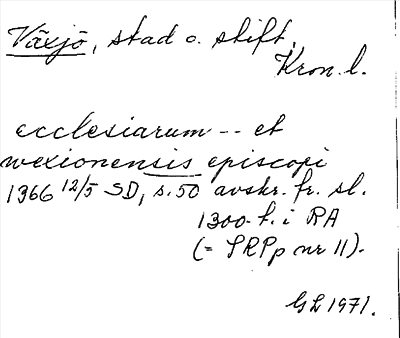 Växjö, stad o. stift.
Kron. l.
ecclesiarum -- et
wexionensis episcopi
1366 12/5 SD, s. 50 avskr. fr. sl.
1300-t. i RA
(= SRPp nr 11).
GL 1971.